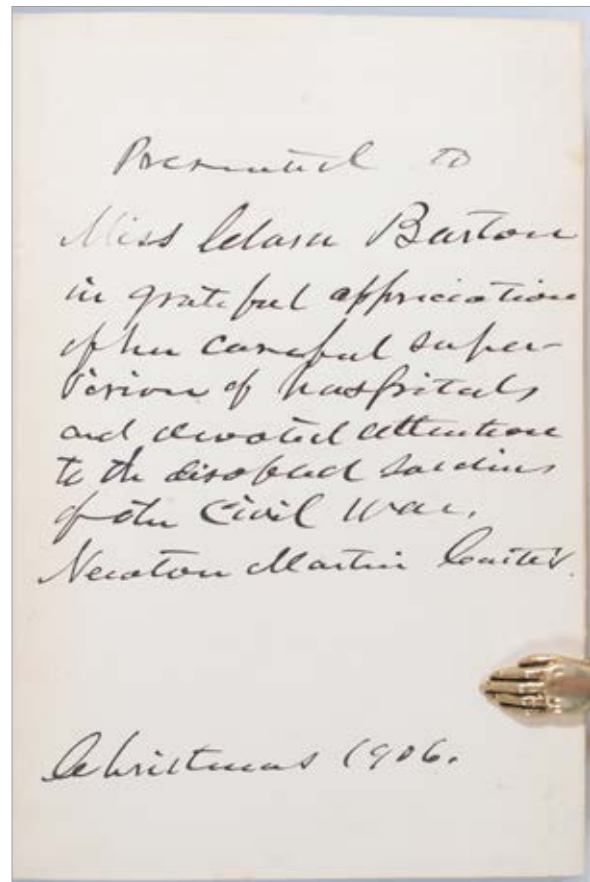 Presented to
Miss Clara Barton
in grateful appreciation
of her careful super-
vision of hospitals
and devoted attention
to the disabled soldiers
of the Civil War.
Newton Martin Curtis.
Christmas 1906.